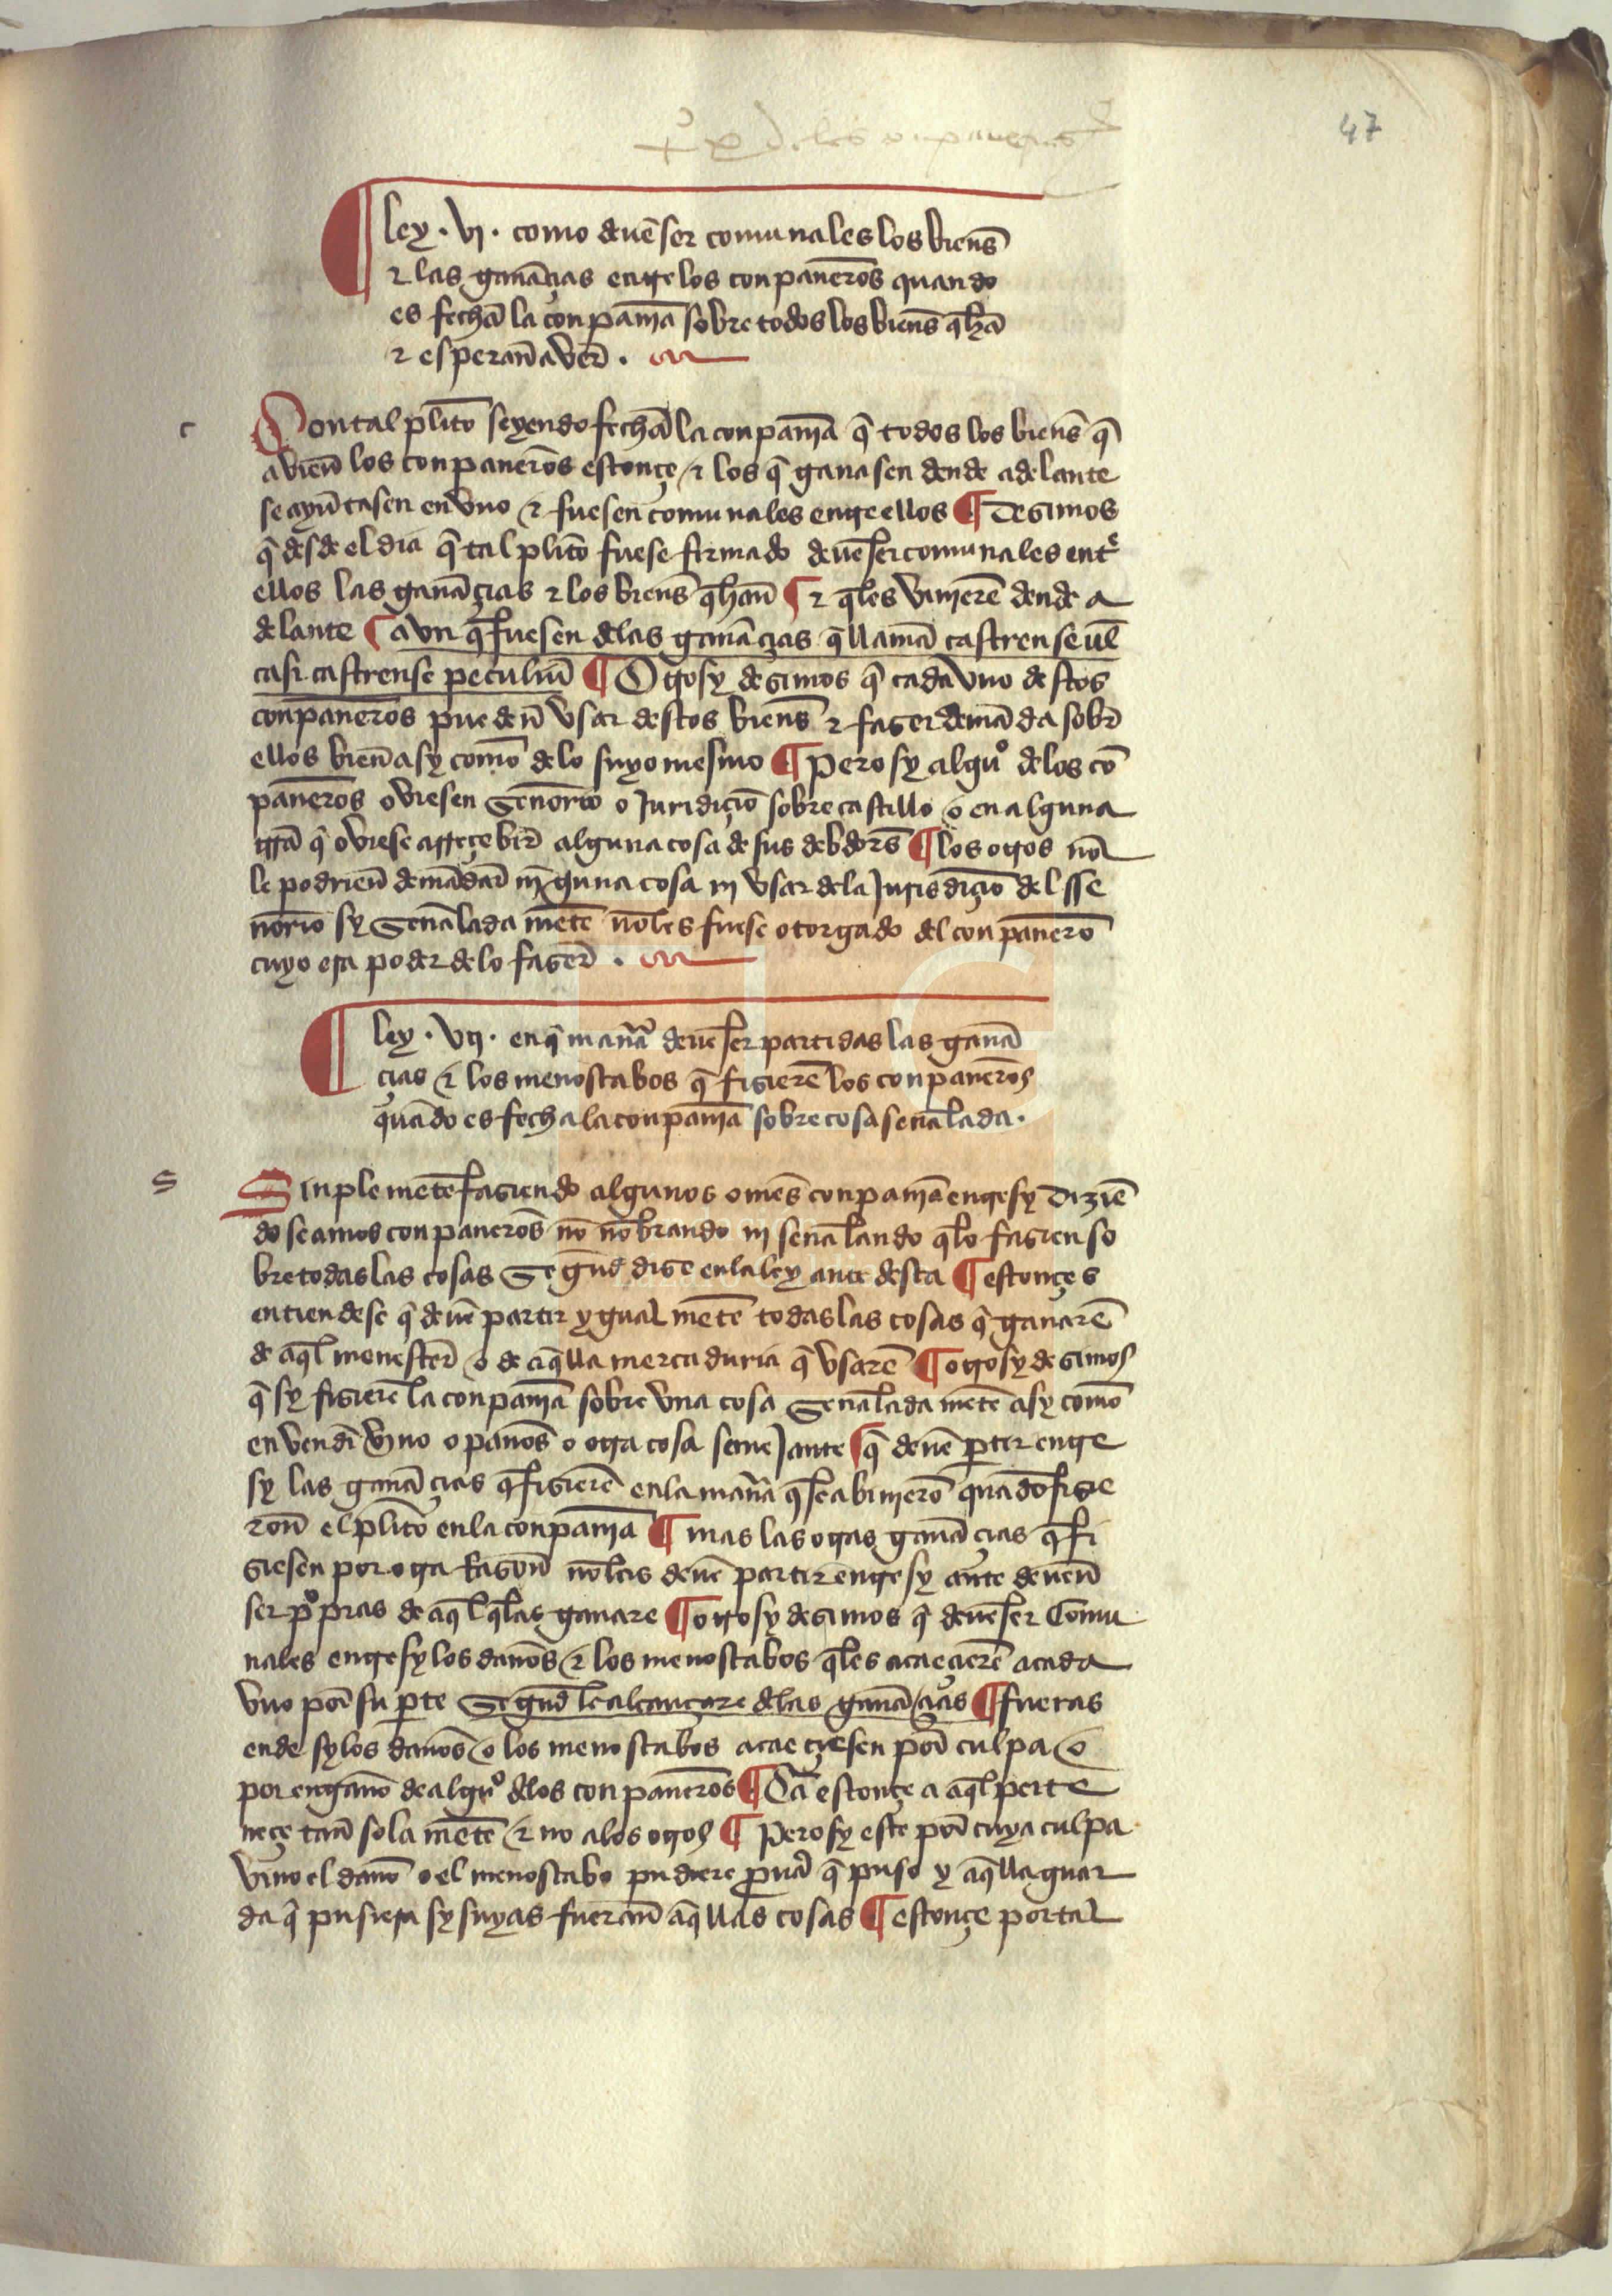 47
de los conpaneros
ley · vj · como deuē ser comunales los bienes̄
⁊ las ganāçias entre los conpaneros̄ quando
es fechā la conpania̅ sobre todos los bienes̄ q̄ hā
⁊ esperan̄ aver̄ ·
c
Con tal plito̅ seyendo fechā la conpania̅ q̄ todos los bienes̄ q̄
avien̄ los conpaneros̄ estonçe ⁊ los q̄ ganasen dende adelante
se ayūtasen en vno ⁊ fuesen comunales entre ellos ¶ Desimos
q̄ desde el dia q̄ tal plito̅ fuese firmado deuē ser comunales entre
ellos las ganāçias ⁊ los bienes̄ q̄ han̄ ¶ ⁊ q̄ les vinierē dende a
delante ¶ avn q̄ fuesen delas ganāçias q̄ llamā castrense uel̄
casi castrense peculiū ¶ Otrosy desimos q̄ cada vno destos
conpaneros̄ pueden̄ vsar destos bienes̄ ⁊ faser demāda sobre̅
ellos bien̄ asy como̅ de lo suyo mesmo ¶ Pero sy alguº delos cō
paneros̄ oviesen senorio̅ o juridiçiō sobre castillo o en alguna
trrā q̄ oviese a rreçebir̄ alguna cosa de sus debdores̄ ¶ los otros nō
le podrien̄ demādar̄ nīguna cosa nj vsar dela jurisdiçiō del sse
norio̅ sy senalada mēte nō les fuese otorgado del conpanero̅
cuyo era poder de lo faser̄ ·
ley · vij · en q̄ manera deuē ser partidas las ganā
çias ⁊ los menoscabos q̄ fisierē los conpaneros̄
quādo es fecha la conpania̅ sobre cosa senalada ·
s
Sinple mēte fasiendo algunos omes̄ conpania̅ entre sy diziē
do seamos conpaneros̄ nō nōbrando nj senalando q̄ lo fasien so
bre todas las cosas segūd dise en la ley ante desta ¶ estonçes
entiendese q̄ deuē partir ygual mēte todas las cosas q̄ ganarē
de aq̄l menester̄ o de aq̄lla mercaduria q̄ vsarē ¶ otrosy desimos
q̄ sy fisierē la conpania̅ sobre vna cosa senalada mēte asy como̅
en vender̄ vino o panos̄ o otra cosa semejante ¶ q̄ deuē partir entre
sy las ganāçias q̄ fisierē en la manera q̄ se abinierō quādo fisie
ron̄ el plito̅ en la conpania̅ ¶ mas las otras ganāçias q̄ fi
siesen por otra rason̄ nō las deuē partir entre sy ante deuen̄
ser propias de aq̄l q̄ las ganare ¶ otrosy desimos q̄ deuē ser Comu
nales entre sy los danos̄ ⁊ los menoscabos q̄ les acaeçierē a cada
vno por̄ su parte segūd le alcançare delas ganāçias ¶ fueras
ende sy los danos̄ o los menoscabos acaeçiesen por̄ culpa o
por engano̅ de alguº delos conpaneros̄ ¶ Ca̅ estonçe a aq̄l perte
neçe tan̄ sola mēte ⁊ no a los otros ¶ Pero sy este por̄ cuya culpa
vino el dano̅ o el menoscabo pudiere prouar̄ q̄ puso y aq̄lla guar
da q̄ pusiera sy suyas fueran̄ aq̄llas cosas ¶ estonçe por tal